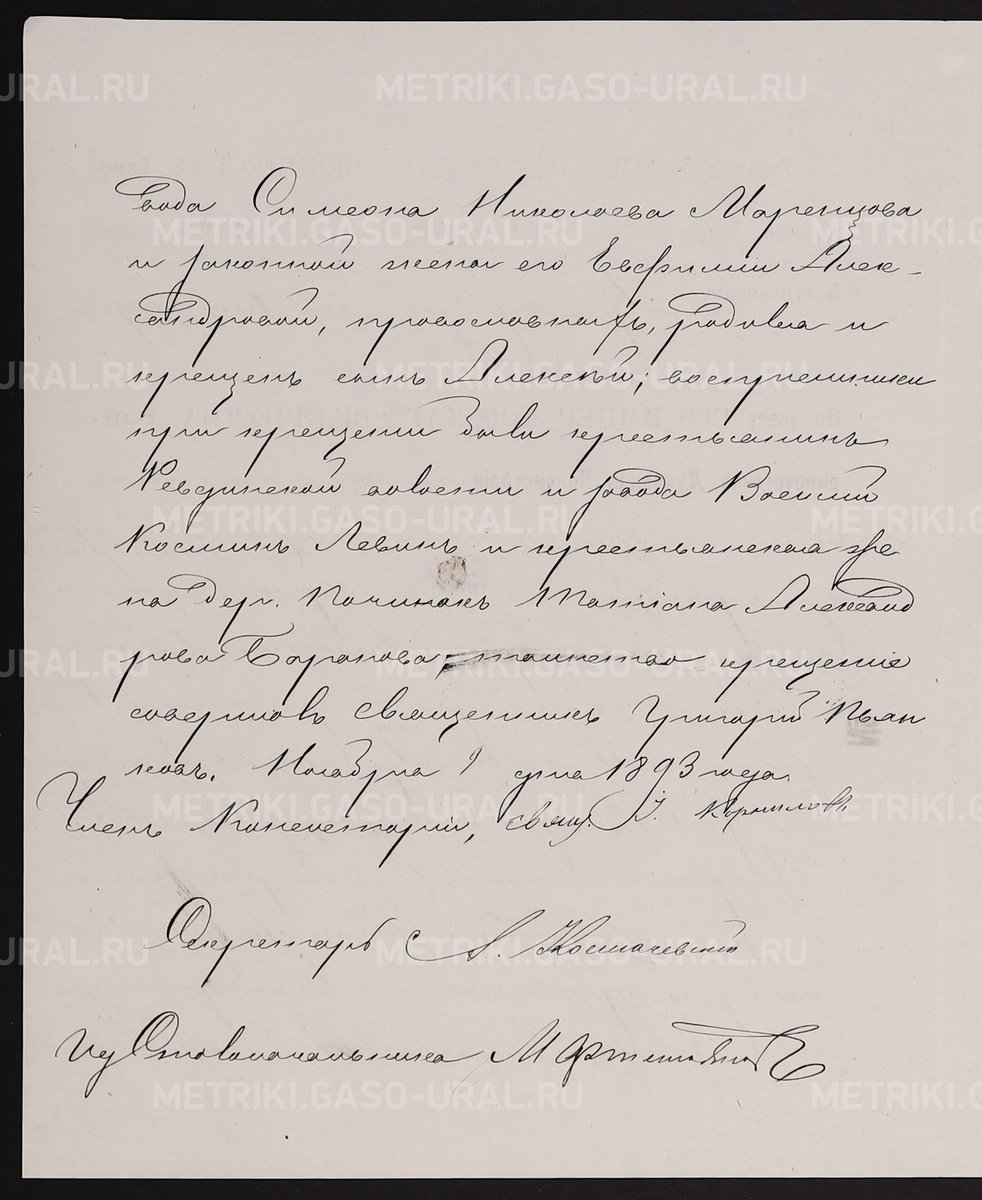 вода Симеона Николаева Маренцова
и законной жены его Евфимии Алек-
сандровой, православныхъ, родился и
крещенъ сынъ Алексѣй; воспріемники
при крещеніи были крестьянинъ
Ревдинской волости и завода Василій
Косминъ Левинъ и крестьянская же
на дер. Починокъ Татіана Александ
рова Баранова, таинство крещенія
совершилъ священникъ Григорій Пьян
ковъ. Ноября 9 дня 1893 года.
Членъ Консисторіи, свящ. І. Корниловъ
Секретарь А. Космачевскій
И д Столоначальника М
METRIKI.GASO-URAL.RU